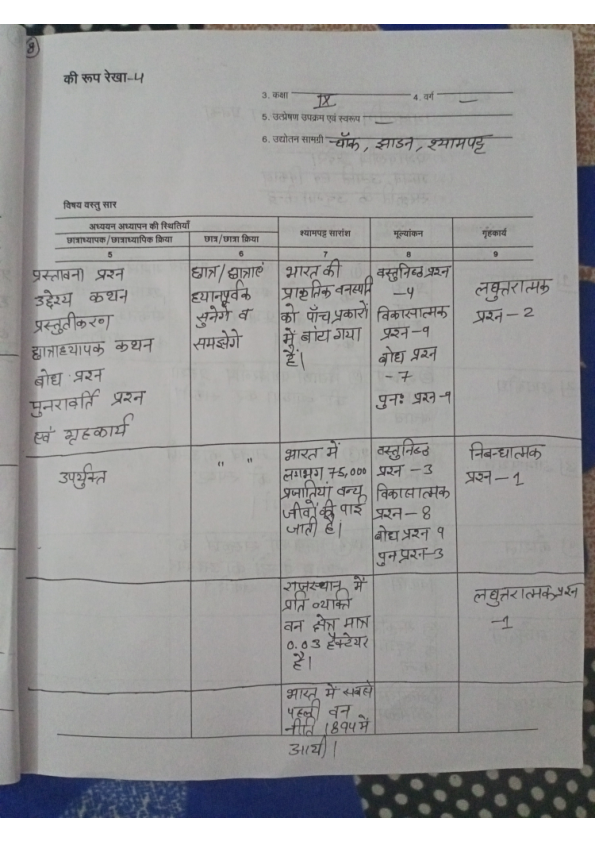 8
की रूप रेखा-4
3. कक्षा IX 4. वर्ग —
5. उत्प्रेषण उपक्रम एवं स्वरूप —
6. उद्योतन सामग्री चॉक, झाडन, श्यामपट्ट
विषय वस्तु सार
अध्ययन अध्यापन की स्थितियाँ श्यामपट्ट सारांश मूल्यांकन गृहकार्य
छात्राध्यापक/छात्राध्यापिक क्रिया छात्र/छात्रा क्रिया
5 6 7 8 9
प्रस्तावना प्रश्न
उद्देश्य कथन
प्रस्तुतीकरण
छात्राध्यापक कथन
बोध प्रश्न
पुनरावर्ति प्रश्न
एवं गृहकार्य
छात्र/छात्राएं
ध्यानपूर्वक
सुनेगे व
समझेगे
भारत की
प्राकृतिक वनस्पति
को पाँच प्रकारों
में बांटा गया
हैं।
वस्तुनिष्ठ प्रश्न
-4
विकासात्मक
प्रश्न-9
बोध प्रश्न
-7
पुनः प्रश्न-9
लघुत्तरात्मक
प्रश्न-2
उपर्युक्त
" "
भारत में
लगभग 75,000
प्रजातियां वन्य
जीवों की पाई
जाती है।
वस्तुनिष्ठ
प्रश्न-3
विकासात्मक
प्रश्न-8
बोध प्रश्न 9
पुन प्रश्न-3
निबन्धात्मक
प्रश्न-1
राजस्थान में
प्रति व्यक्ति
वन क्षेत्र मात्र
0.03 हैक्टेयर
है।
लघुत्तरात्मक प्रश्न
-1
भारत में सबसे
पहली वन
नीति 1894 में
आयी।